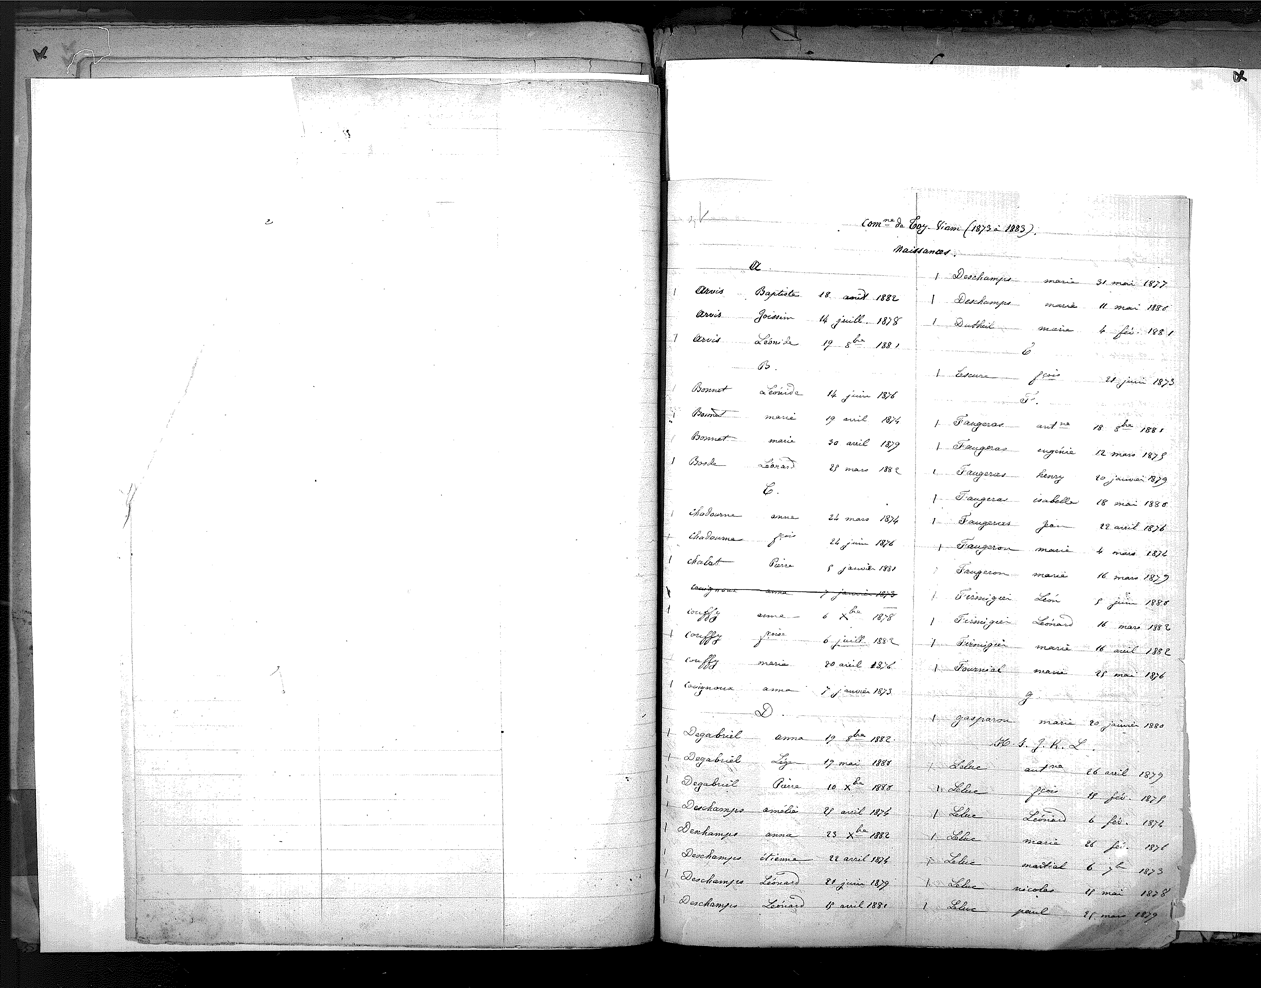 Comne de Toy-Viam (1873 à 1883).
Naissances.
A
Arvis Baptiste 18 août 1882
Arvis Joissim 14 juill. 1878
Arvis Léonide 19 8bre 1881
B.
Bonnet Léonide 14 juin 1876
Bonnet marie 19 avril 1874
Bonnet marie 30 avril 1879
Bosde Léonard 25 mars 1882
C.
Chadourne anna 24 mars 1874
Chadourne fçois 24 juin 1876
Chalat Pierre 5 janvier 1881
Couignoux anna 7 janvier 1873
Couffy anna 6 Xbre 1878
Couffy 6 juill. 1882
Couffy marie 20 avril 1876
Couignoux anna 7 janvier 1873
D.
Degabriel anna 19 8bre 1882
Degabriel Léger 17 mai 1880
Degabriel Pierre 10 Xbre 1880
Deschamps amélie 25 avril 1876
Deschamps anna 23 Xbre 1882
Deschamps étienne 22 avril 1874
Deschamps Léonard 21 juin 1879
Deschamps Léonard 15 avril 1881
Deschamps marie 31 mai 1877
Deschamps marie 11 mai 1880
Dutheil marie 4 fév. 1881
E
Escure fçois 21 juin 1873
F.
Faugeras antne 18 8bre 1881
Faugeras eugénie 12 mars 1875
Faugeras henry 20 janvier 1879
Faugeras isabelle 18 mai 1880
Faugeras jean 22 avril 1876
Faugeron marie 4 mars 1874
Faugeron marie 16 mars 1879
Firmigier Léon 5 juin 1880
Firmigier Léonard 16 mars 1882
Firmigier marie 16 avril 1882
Fournial marie 25 mai 1876
G.
gasparou marie 20 janvier 1880
H. I. J. K. L.
Leluc antne 26 avril 1879
Leluc fçois 18 fév. 1875
Leluc Léonard 6 fév. 1874
Leluc marie 26 fév. 1876
Leluc martial 6 7bre 1873
Leluc nicolas 15 mai 1878
Leluc paul 25 mars 1879